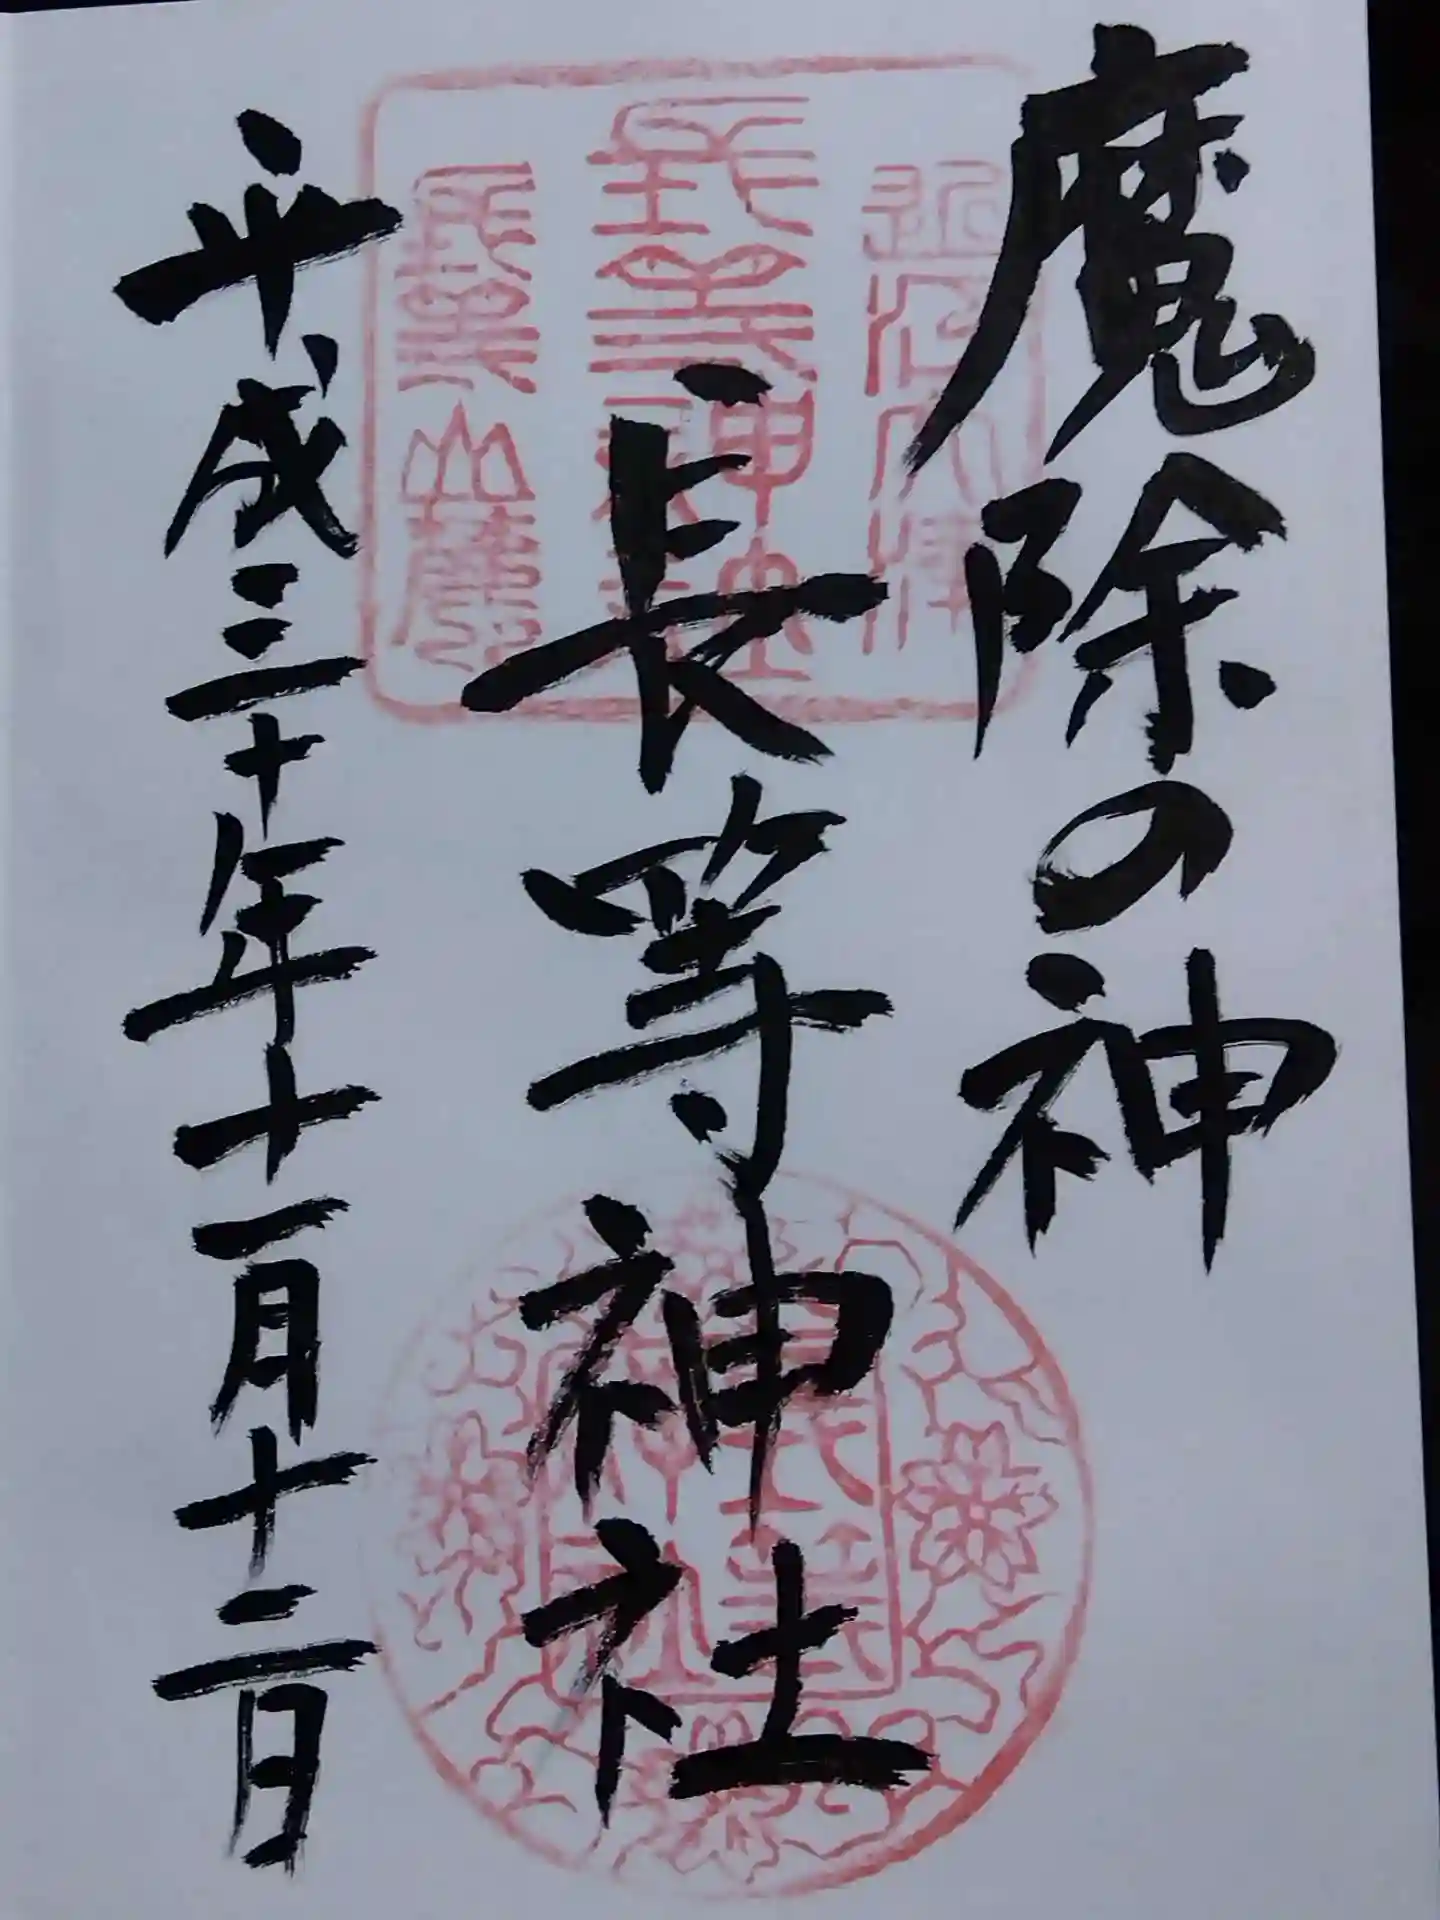 魔除の神
長等神社
平成三十年十一月十二日
近江大津
長等神社
長等山麓
長等
神社